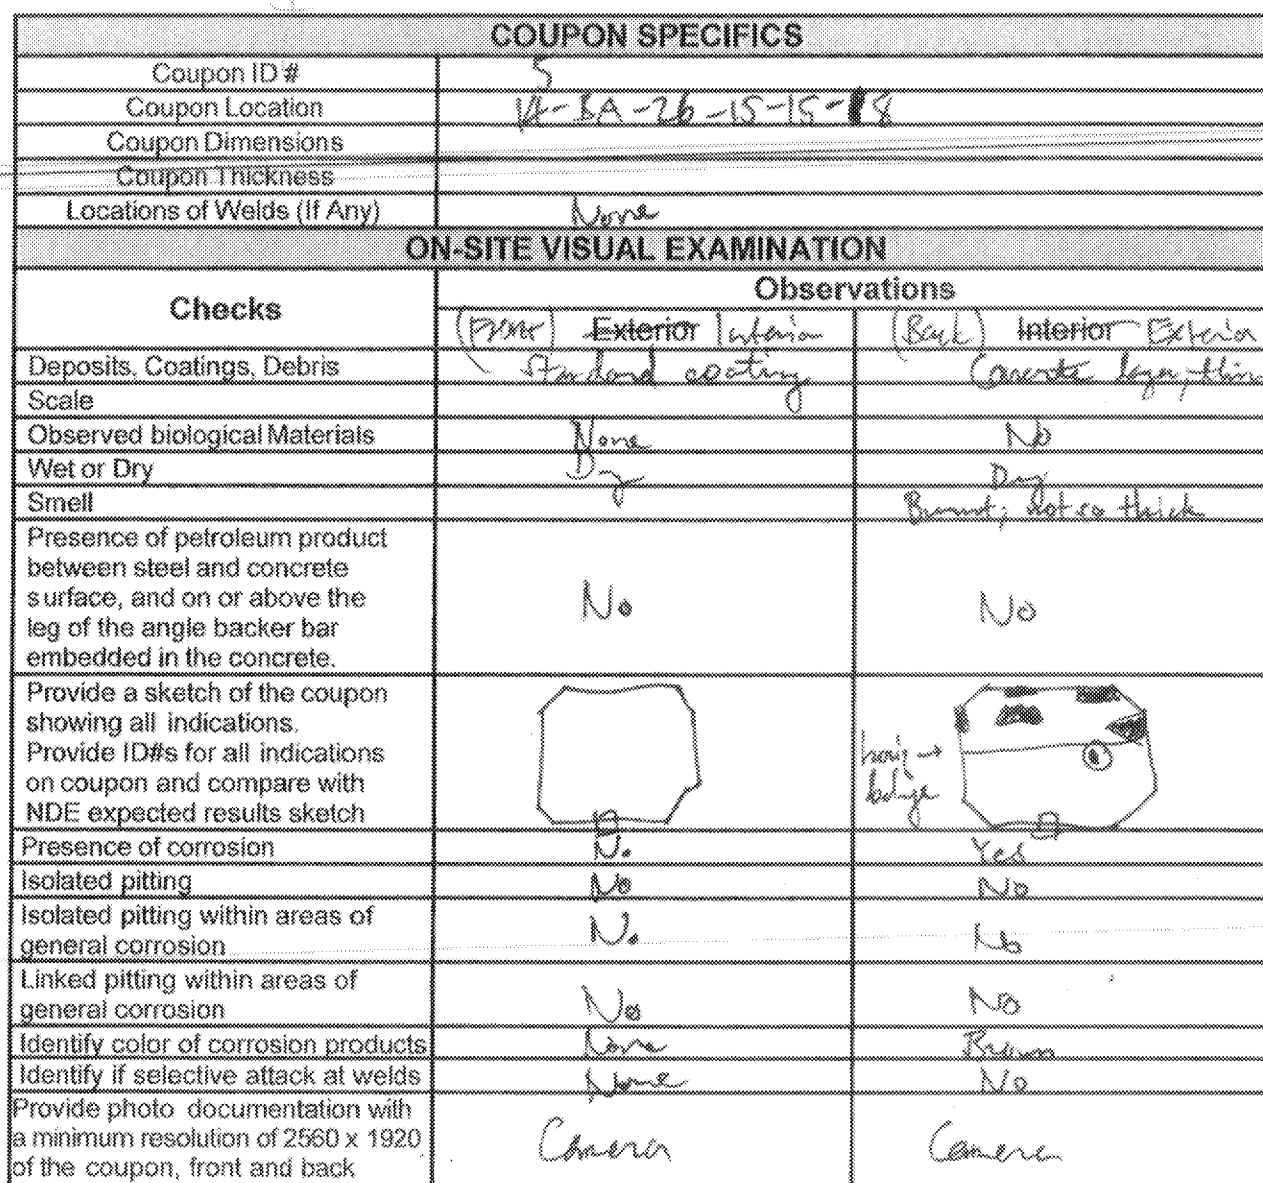 COUPON SPECIFICS
Coupon ID # 5
Coupon Location 14-BA-26-15-15-8
Coupon Dimensions
Coupon Thickness
Locations of Welds (If Any) None
ON-SITE VISUAL EXAMINATION
Checks Observations
(Front) Exterior Interior (Back) Interior Exterior
Deposits, Coatings, Debris Standard coating Concrete layer, thin
Scale
Observed biological Materials None No
Wet or Dry Dry Dry
Smell Burnt, not so thick
Presence of petroleum product
between steel and concrete
surface, and on or above the
leg of the angle backer bar
embedded in the concrete. No No
Provide a sketch of the coupon
showing all indications.
Provide ID#s for all indications
on coupon and compare with
NDE expected results sketch
bulge
Presence of corrosion No Yes
Isolated pitting No No
Isolated pitting within areas of
general corrosion No No
Linked pitting within areas of
general corrosion No No
Identify color of corrosion products None Brown
Identify if selective attack at welds None No
Provide photo documentation with
a minimum resolution of 2560 x 1920
of the coupon, front and back Camera Camera